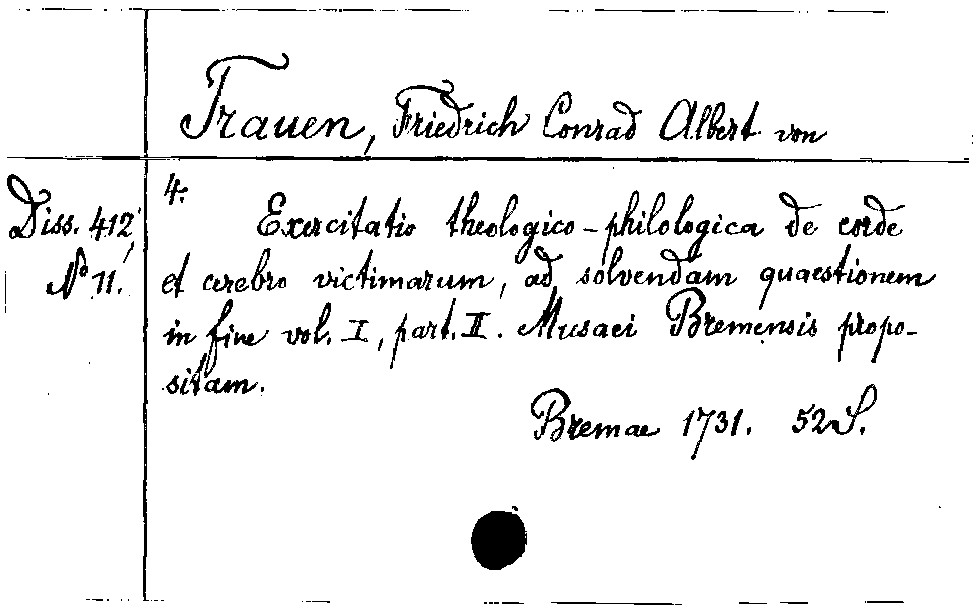 Trauen, Friedrich Conrad Albert von
Diss. 412,
No 11.
4.
Exercitatio theologico-philologica de corde
et cerebro victimarum, ad solvendam quaestionem
in fine vol. I, part. II. Musaei Bremensis propo-
sitam.
Bremae 1731. 52 S.